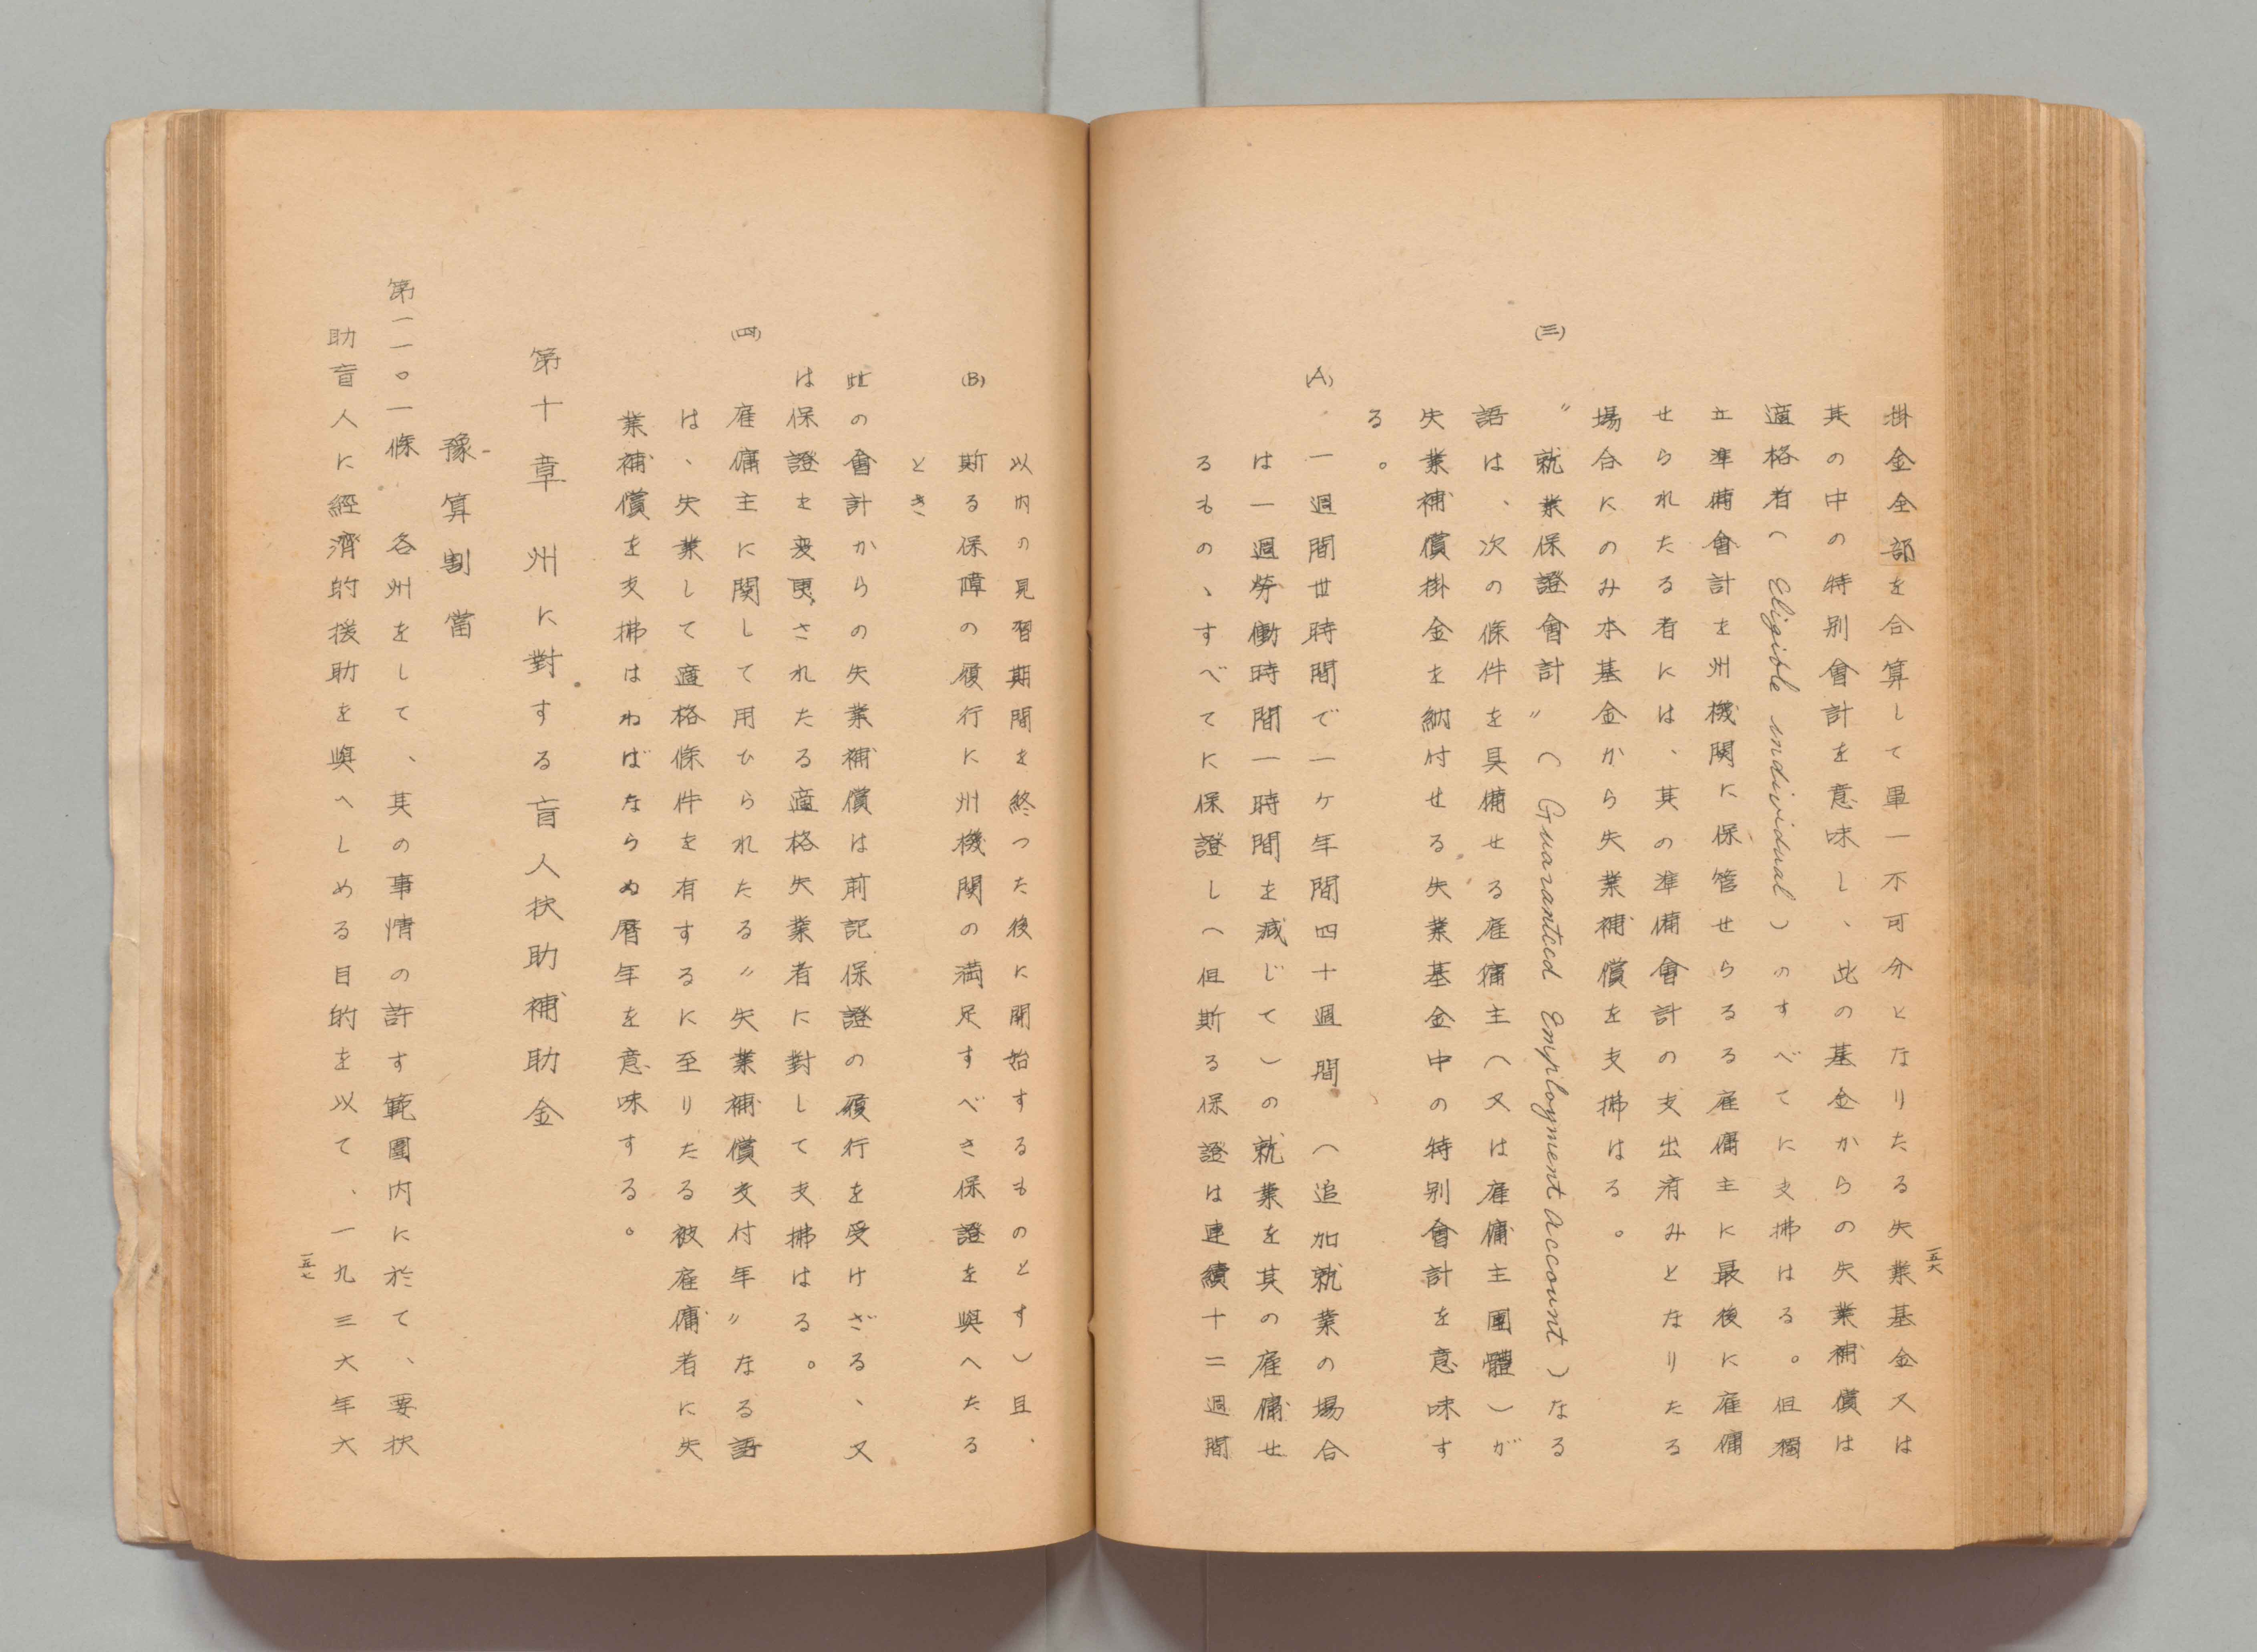 掛金全部を合算して單一不可分となりたる失業基金又は
其の中の特別會計を意味し、此の基金からの失業補償は
適格者(Eligible individual)のすべてに支拂はる。但獨
立準備會計を州機関に保管せらるる雇傭主に最後に雇傭
せられたる者には、其の準備會計の支出済みとなりたる
場合にのみ本基金から失業補償を支拂はる。
(三)〃就業保證會計〃(Guaranteed Employment Account)なる
語は、次の條件を具備せる雇傭主(又は雇傭主團體)が
失業補償掛金を納付せる失業基金中の特別會計を意味す
る。
(A)一週間丗時間で一ケ年間四十週間(追加就業の場合
は一週労働時間一時間を減じて)の就業を其の雇傭せ
るもの、すべてに保證し(但斯る保證は連續十二週間
一五六
以内の見習期間を終つた後に開始するものとす)且、
(B)斯る保障の履行に州機関の満足すべき保證を與へたる
とき
此の會計からの失業補償は前記保證の履行を受けざる、又
は保證を変更されたる適格失業者に對して支拂はる。
(四)雇傭主に関して用ひられたる〃失業補償支付年〃なる語
は、失業して適格條件を有するに至りたる被雇傭者に失
業補償を支拂はねばならぬ暦年を意味する。
第十章 州に對する盲人扶助補助金
豫算割當
第一一〇一條 各州をして、其の事情の許す範圍内に於て、要扶
助盲人に經濟的援助を與へしめる目的を以て、一九三六年六
一五七